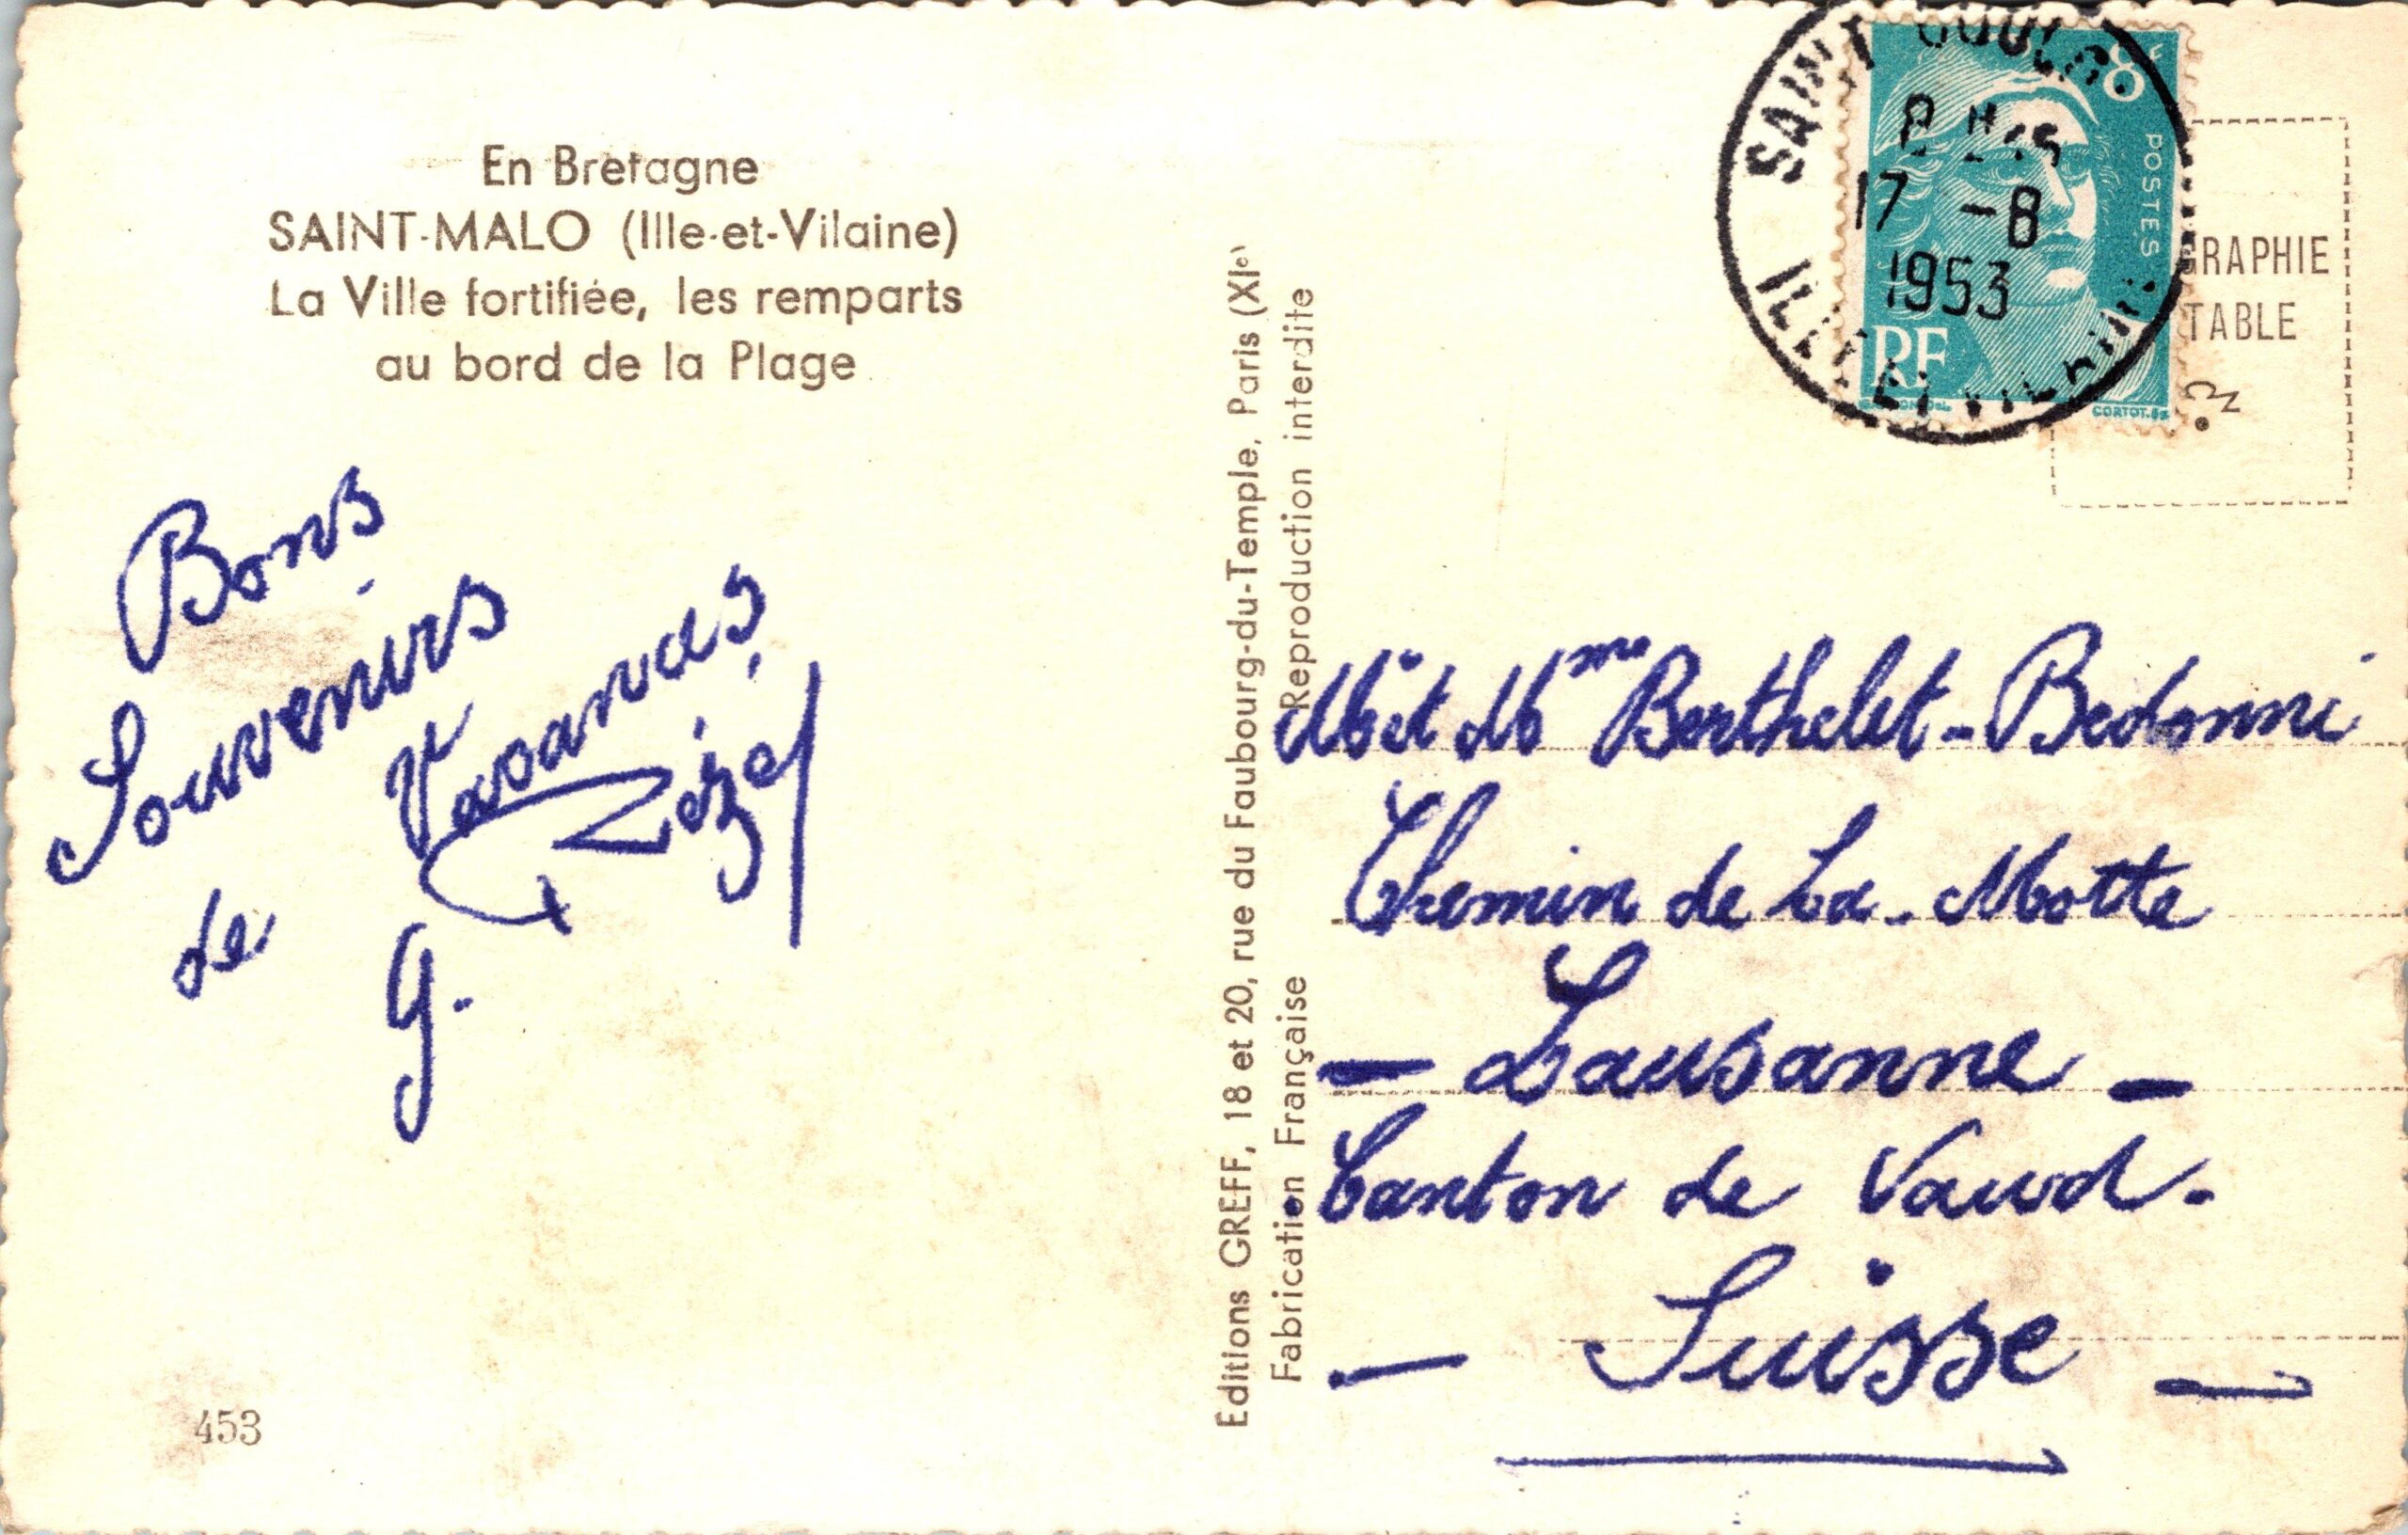 En Bretagne
SAINT-MALO (Ille-et-Vilaine)
La Ville fortifiée, les remparts
au bord de la Plage
Bons
Souvenirs
de
Vacances
G.
453
Editions GREFF, 18 et 20, rue du Faubourg-du-Temple, Paris (XIe)
Fabrication Française Reproduction interdite
SAINT
17 -8
1953
ILLE ET VILAINE
8F
POSTES
RF
CORTOT.
GRAPHIE
TABLE
Mr et Mme Berthelet-Bedonni
Chemin de La-Motte
- Lausanne -
Canton de Vaud.
- Suisse -